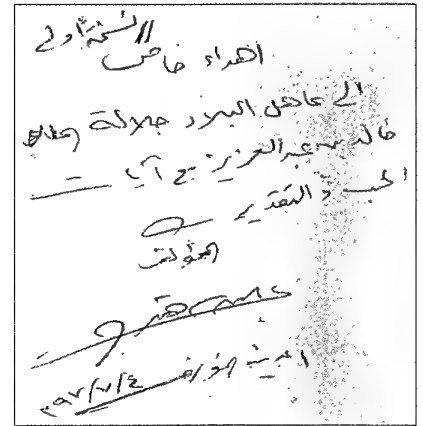 النسخة أولى
اهداء خاص
الى عاهل البلاد جلالة الملك
خالد بن عبد العزيز مع آيات
الحب والتقدير
المؤلف
المدينة المنورة
٣٩٧/٧/٤